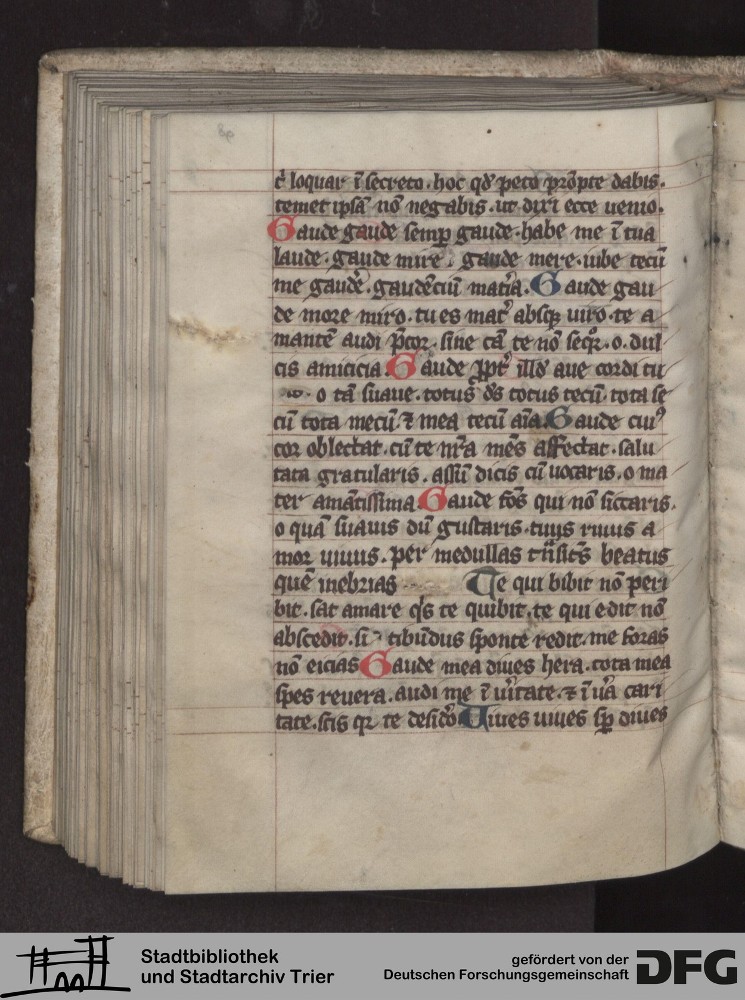 loquar ī secreto . hoc qd̄ peto prōpte dabis .
temet ipsā nō negabis . ut dixi ecce uenio .
Gaude gaude semꝑ gaude . habe me ī tua
laude . gaude mire . gaude mere . iube tecū
me gaudē . gaudēciū mat̄ia . Gaude gau
de more miro . tu es mat̄ absqꝫ uiro . te a
mantē audi p̄cor . sine cā te nō seqr̄ . o . dul
cis amiticia . Gaude illd̄ aue cordi tu
o tā suaue . totus ds̄ totus tecū . tota se
cū tota mecū . ⁊ mea tecū aīa . Gaude cui⁹
cor oblectat . cū te nr̄a mēs affectat . salu
tata gratularis . assū dicis cū uocaris . o ma
ter amātissima . Gaude fōs qui nō siccaris .
o quā suauis dū gustaris . tuus riuus a
mor uiuus . per medullas beatus
quē inebrias Te qui bibit nō peri
bit . sat amare q̇s te quibit . te qui edit nō
abscedit . tibūdus sponte redit . me foras
nō eicias Gaude mea diues hera . tota mea
spes reuera . audi me ī ūitate . ⁊ ī ūa cari
tate . scis qr te desid̄o Uiues uiues sꝑ diues
Stadtbibliothek
und Stadtarchiv Trier
gefördert von der
Deutschen Forschungsgemeinschaft
DFG